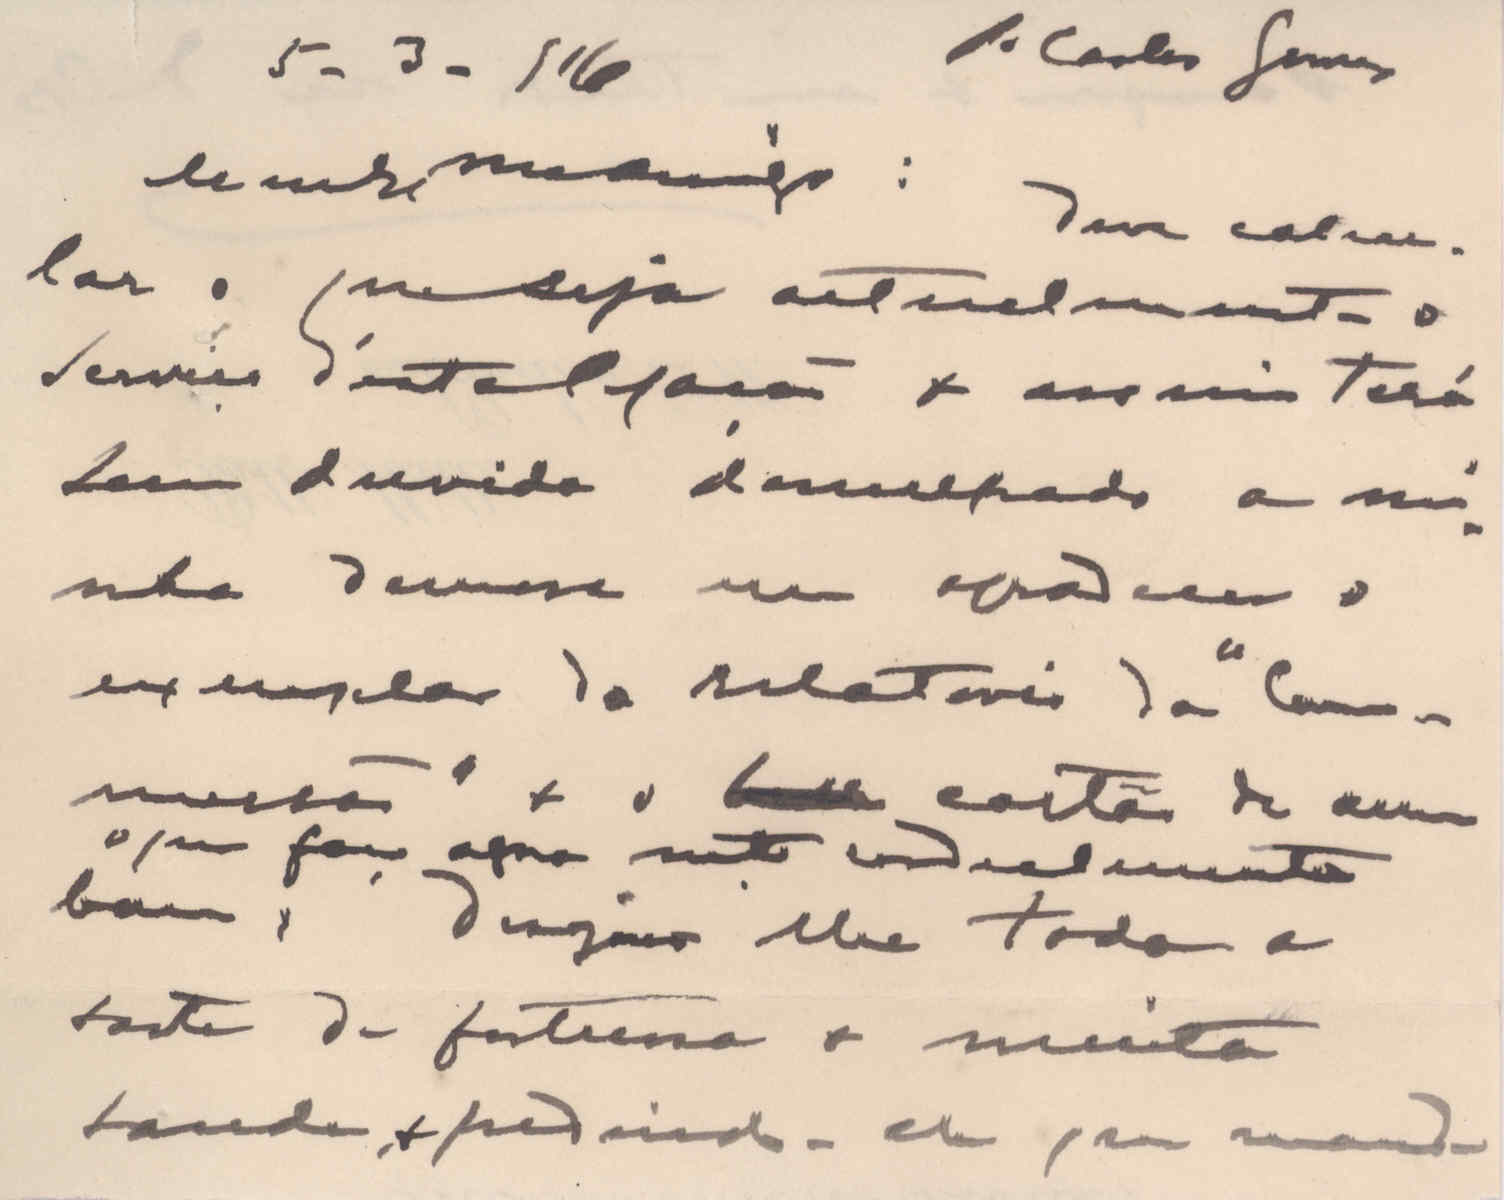 5-3-916 P. Carlos Gomes
meu amigo:
Deve calcu-
lar o que seja actualmente o
serviço d'estalação e assim terá
sem duvida desculpado a mi-
nha demora em agradecer o
exemplar do relatorio da "Com-
missão" e o cartão de
o que faço agora muito cordialmente
bem; Desejo lhe toda a
sorte de fortuna e muita
saude, e pedindo-lhe que mand-